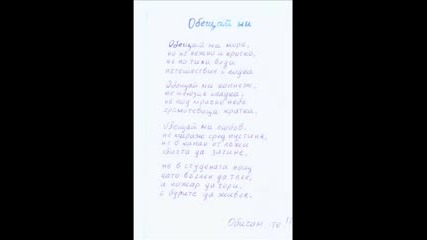 Обещай ми
Обещай ми море,
но не нежно и кротко,
не по тиха вода
пътешествие с лодка.
Обещай ми копнеж,
не под мрачно небе
кратка.
Обещай ми любов,
не мираж сред пустиня,
не в капан от лъжи
да загине.
не в студената пещ
като въглен да тлее,
а пожар да гори,
с бурите да живее.
Обичам те!!